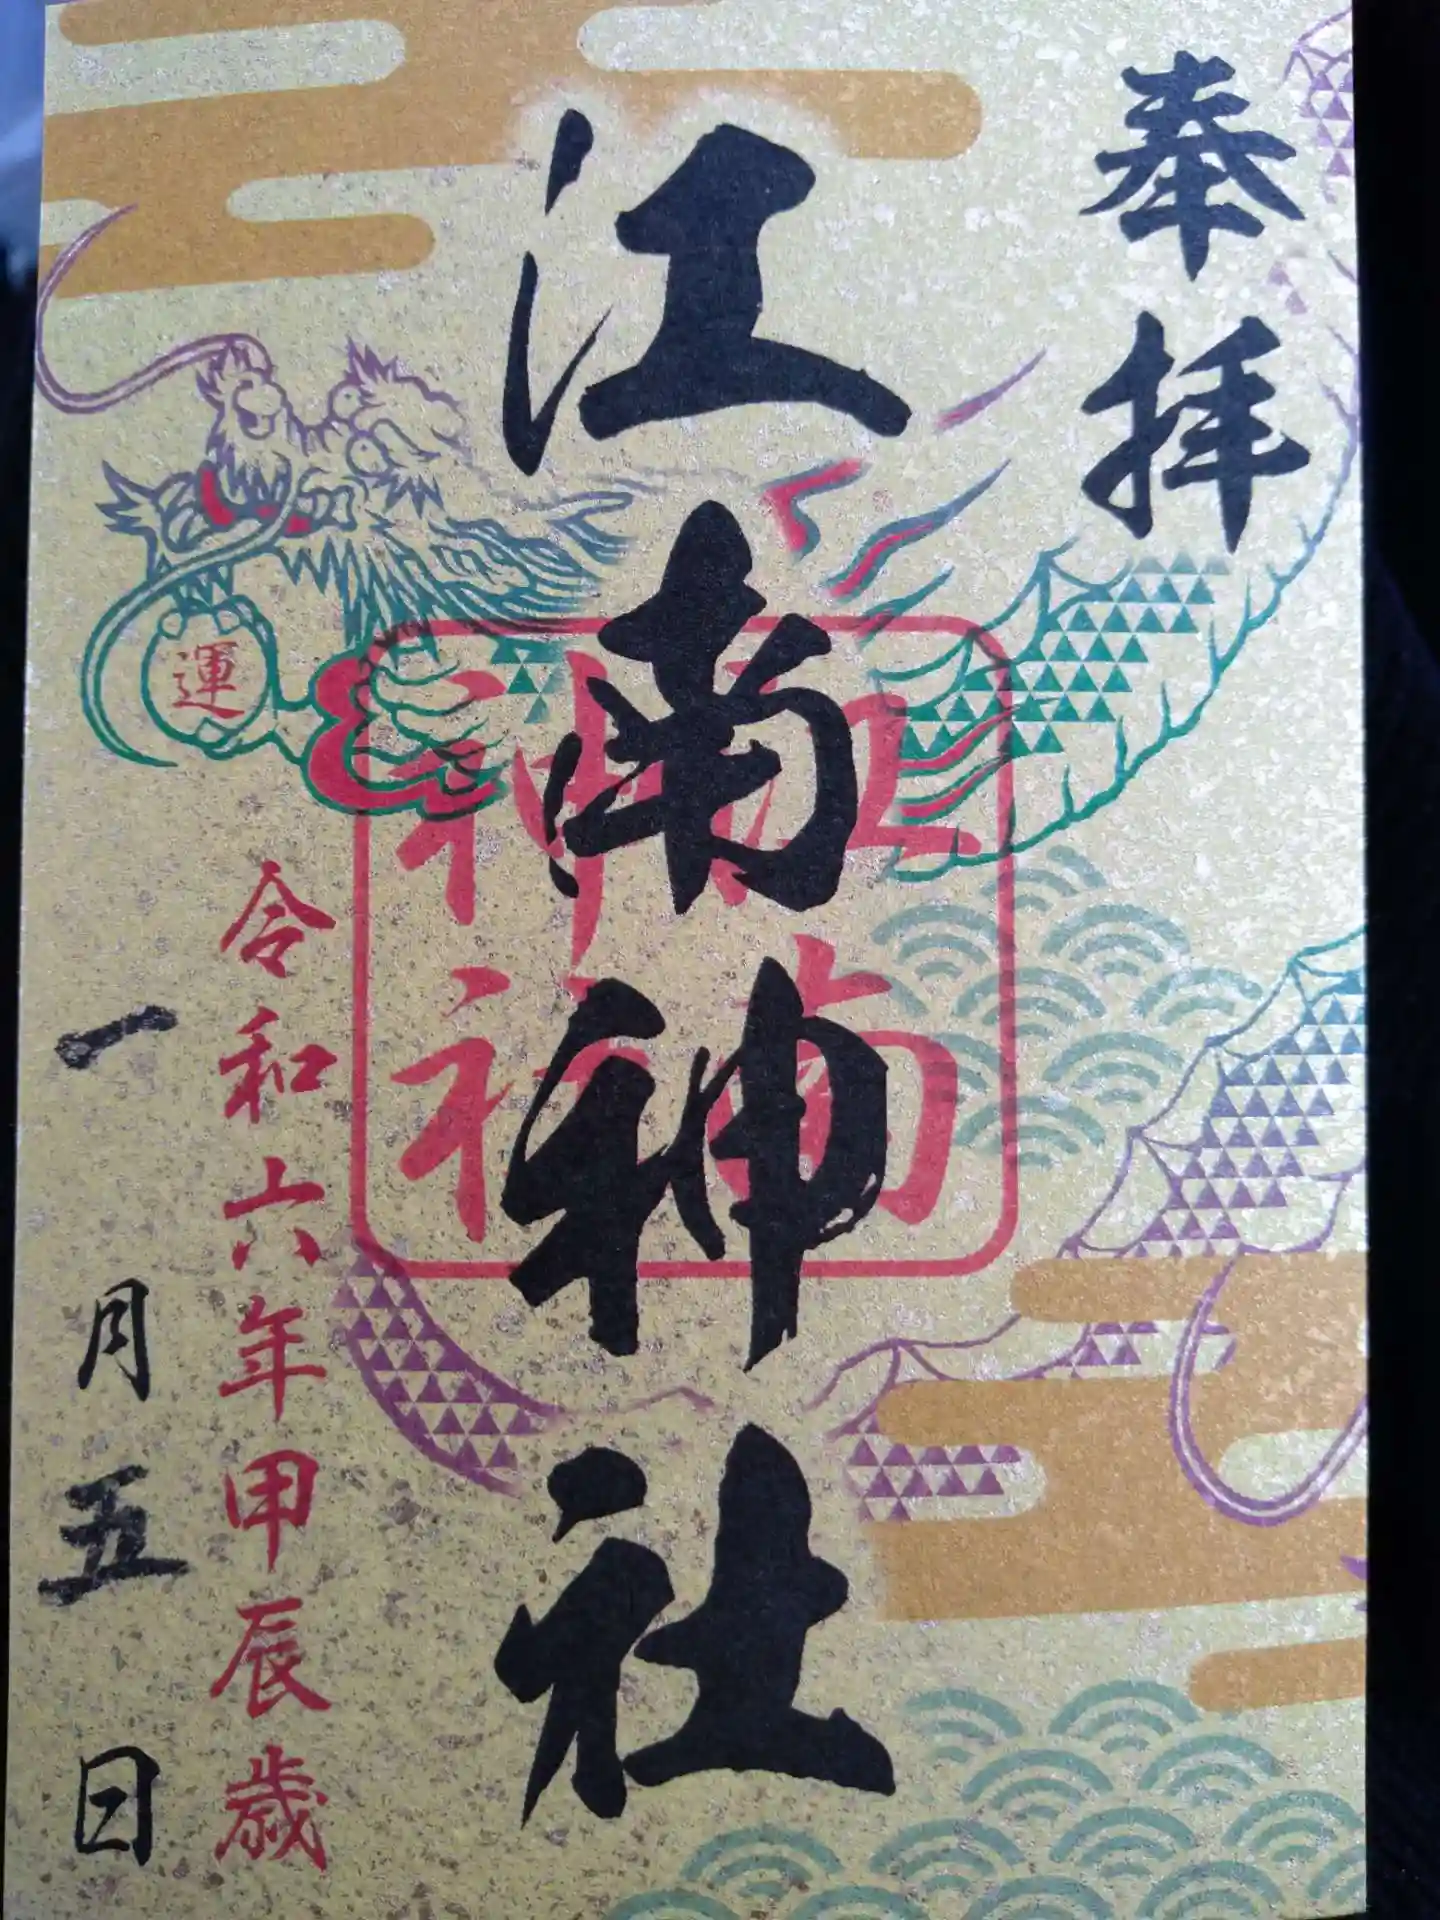 奉拝
江南神社
江南
神社
運
令和六年甲辰歳
一月五日